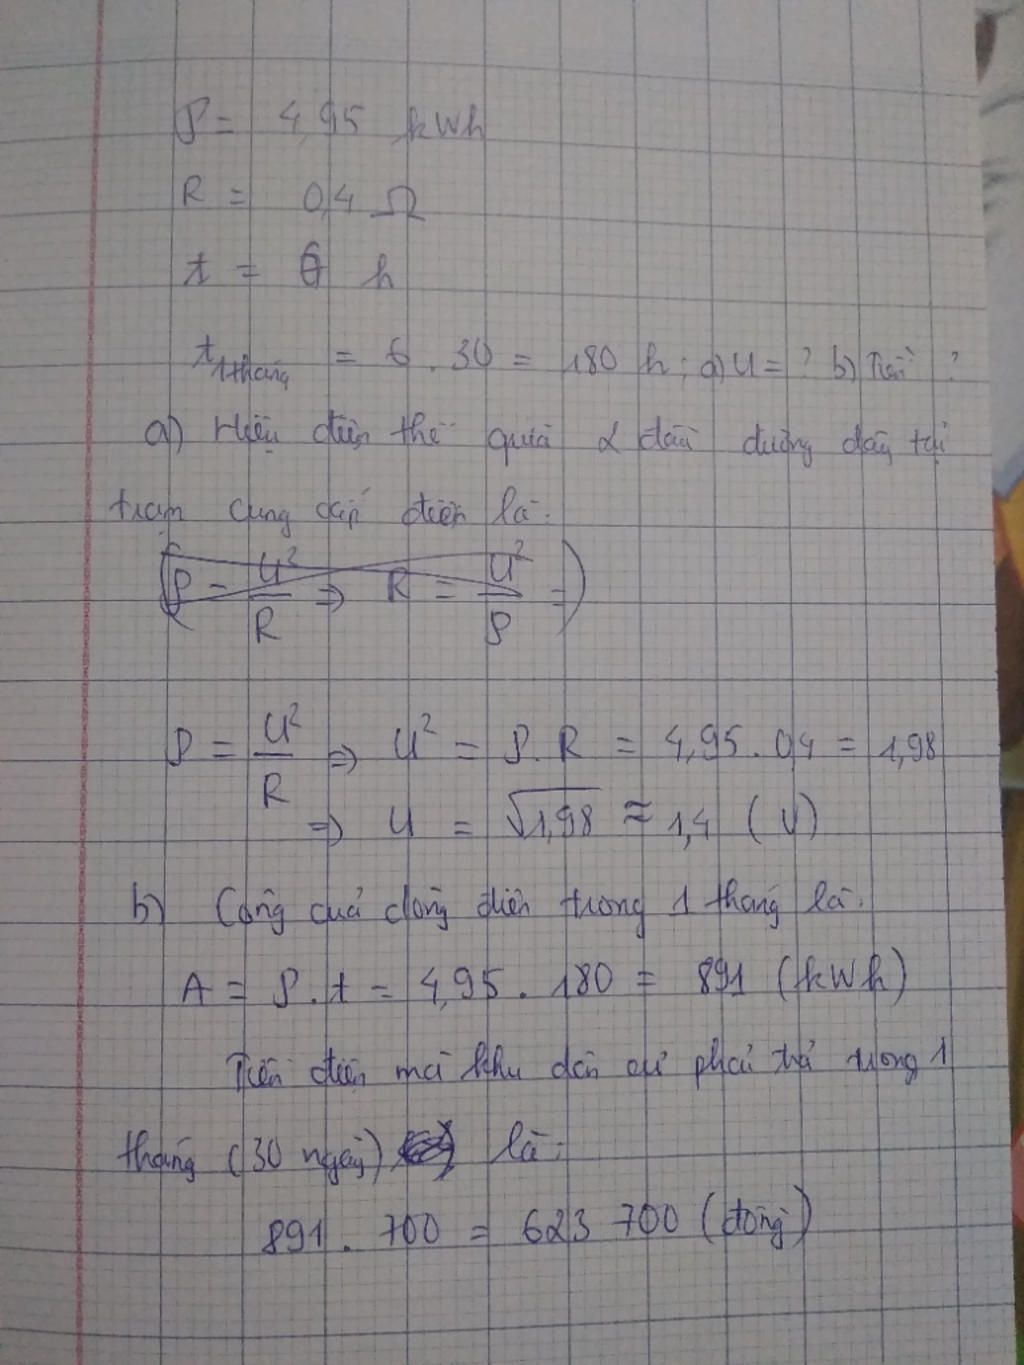 P = 4,95 kWh
R = 0,4 Ω
t = 6 h
t 1 tháng = 6 . 30 = 180 h ; a) U = ? b) Tiền ?
a) Hiệu điện thế giữa 2 đầu đường dây tại
trạm cung cấp điện là:
(P = U²/R ⇒ R = U²/P =)
P = U²/R ⇒ U² = P . R = 4,95 . 0,4 = 1,98
⇒ U = √1,98 ≈ 1,4 (V)
b) Công của dòng điện trong 1 tháng là:
A = P . t = 4,95 . 180 = 891 (kWh)
Tiền điện mà khu dân cư phải trả trong 1
tháng (30 ngày) là:
891 . 700 = 623 700 (đồng)